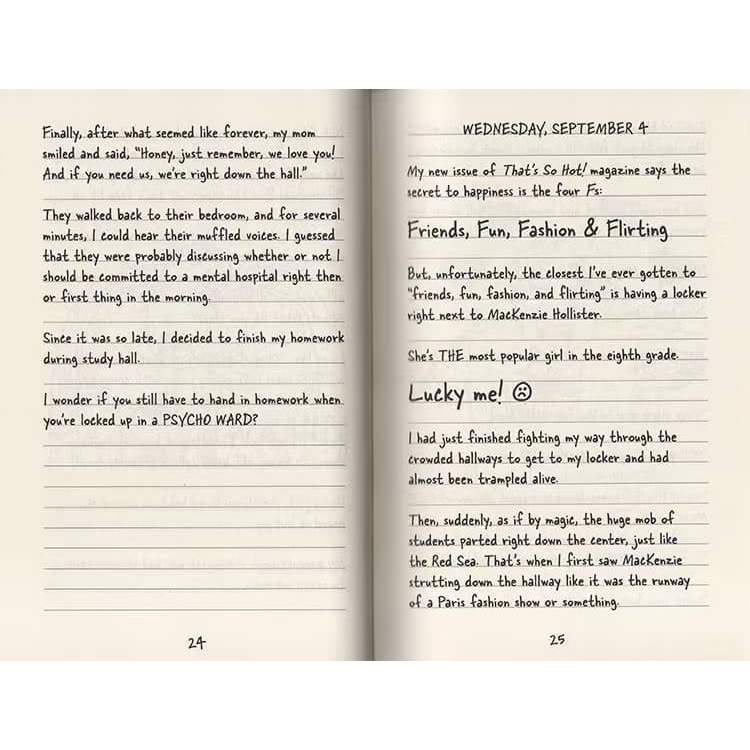 Finally, after what seemed like forever, my mom
smiled and said, "Honey, just remember, we love you!
And if you need us, we're right down the hall."
They walked back to their bedroom, and for several
minutes, I could hear their muffled voices. I guessed
that they were probably discussing whether or not I
should be committed to a mental hospital right then
or first thing in the morning.
Since it was so late, I decided to finish my homework
during study hall.
I wonder if you still have to hand in homework when
you're locked up in a PSYCHO WARD?
24
WEDNESDAY, SEPTEMBER 4
My new issue of That's So Hot! magazine says the
secret to happiness is the four Fs:
Friends, Fun, Fashion & Flirting
But, unfortunately, the closest I've ever gotten to
"friends, fun, fashion, and flirting" is having a locker
right next to MacKenzie Hollister.
She's THE most popular girl in the eighth grade.
Lucky me! ☹
I had just finished fighting my way through the
crowded hallways to get to my locker and had
almost been trampled alive.
Then, suddenly, as if by magic, the huge mob of
students parted right down the center, just like
the Red Sea. That's when I first saw MacKenzie
strutting down the hallway like it was the runway
of a Paris fashion show or something.
25